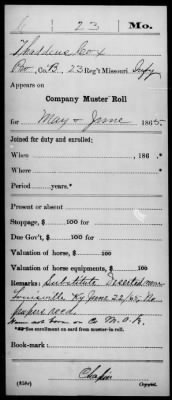 23 Mo.
Thaddeus Cox
Pvt., Co. B, 23 Reg't Missouri Infy.
Appears on
Company Muster Roll
for May & June 1865.
Joined for duty and enrolled:
When , 186 .*
Where *
Period years.*
Present or absent
Stoppage, $ 100 for
Due Gov't, $ 100 for
Valuation of horse, $ 100
Valuation of horse equipments, $ 100
Remarks: Substitute. Deserted near
Louisville Ky June 22/65. No
papers recd.
Name not borne on Co M.O.R.
*See enrollment on card from muster-in roll.
Book-mark:
(858c) Copyist.